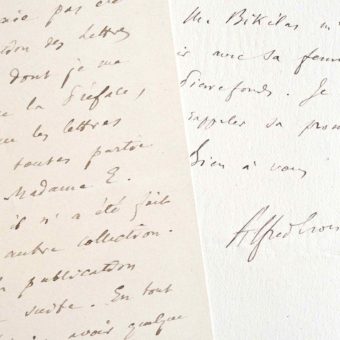 pas
des lettres
dont je me
la Préface,
les lettres
toutes partie
Madame E.
il n'a été fait
autre collection.
publication
suite. En tout
avoir quelque
Mr Bikélas m'
avec sa femme
Pierrefonds. Je
rappeler sa prom
Bien à vous
Alfred Crois